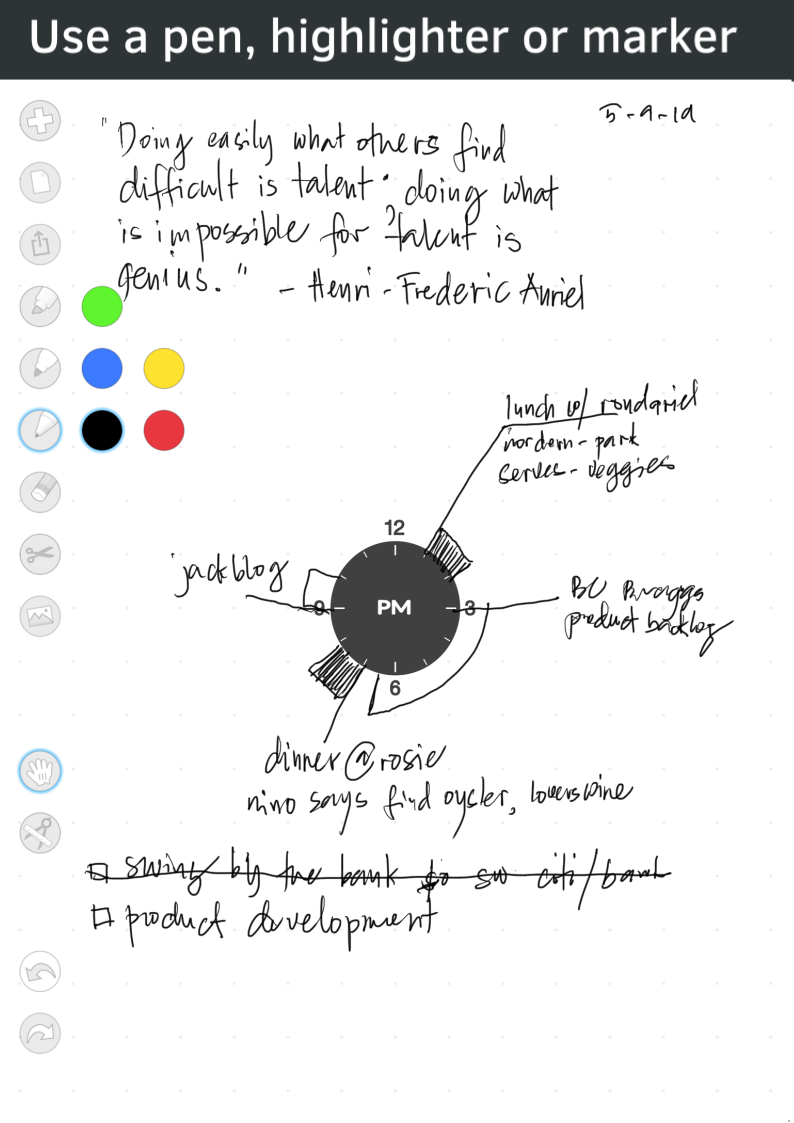 Use a pen, highlighter or marker
5-9-19
"Doing easily what others find
difficult is talent; doing what
is impossible for talent is
genius." - Henri-Frederic Amiel
lunch w/
nordern-park
serves-veggies
12
jackblog
9
PM
3
BU
product backlog
6
dinner@rosie
nino says find oyster, loverswine
swing by the bank to citi/bank
product development